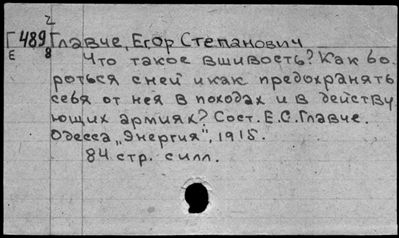 Г 2/489 Главче, Егор Степанович
Е 8 Что такое вшивость? Как бо.
роться с ней и как предохранять
себя от нея в походах и в действу
ющих армиях? Сост. Е.С. Главче.
Одесса, „Энергия", 1915.
84 стр. с илл.